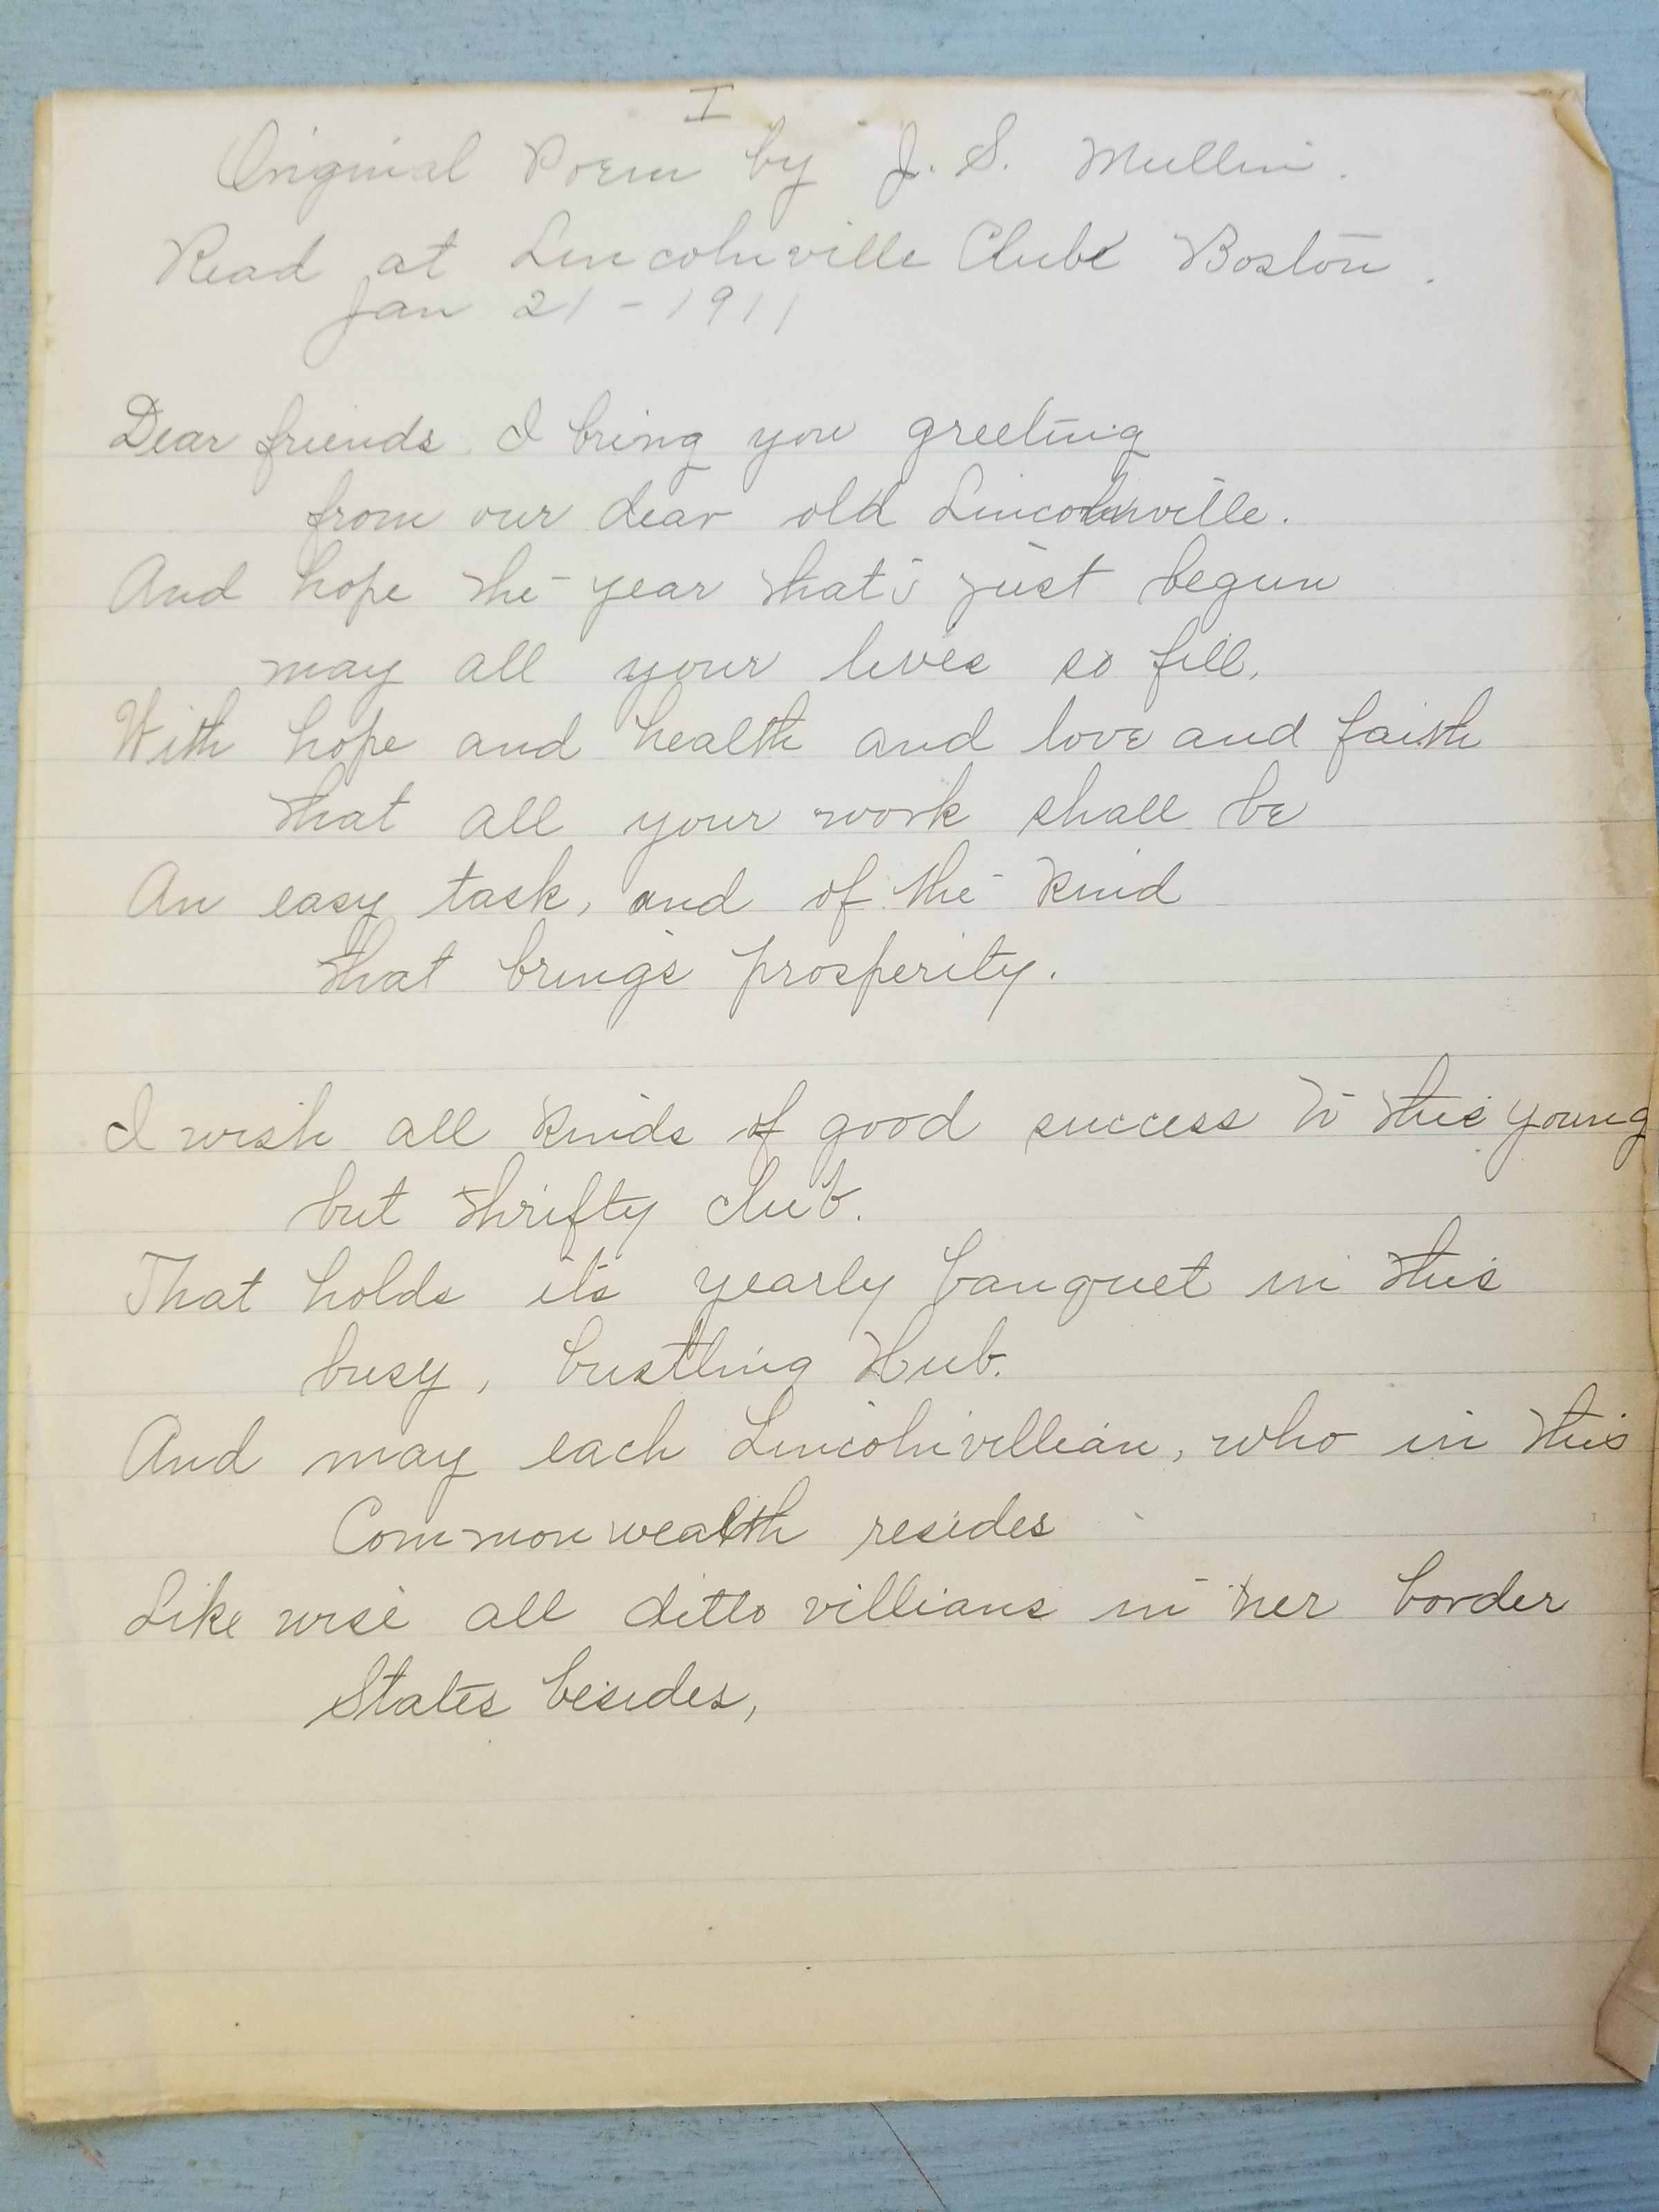 I
Original Poem by J. S. Mullin.
Read at Lincolnville Club Boston.
Jan 21-1911
Dear friends. I bring you greeting
from our dear old Lincolnville.
And hope the year that's just begun
may all your lives so fill,
With hope and health and love and faith
that all your work shall be
An easy task, and of the kind
that brings prosperity.
I wish all kinds of good success to this young
but thrifty club.
That holds its yearly banquet in this
busy, bustling Hub.
And may each Lincolnvillian, who in this
Commonwealth resides
Like wise all ditto villians in her border
States besides,